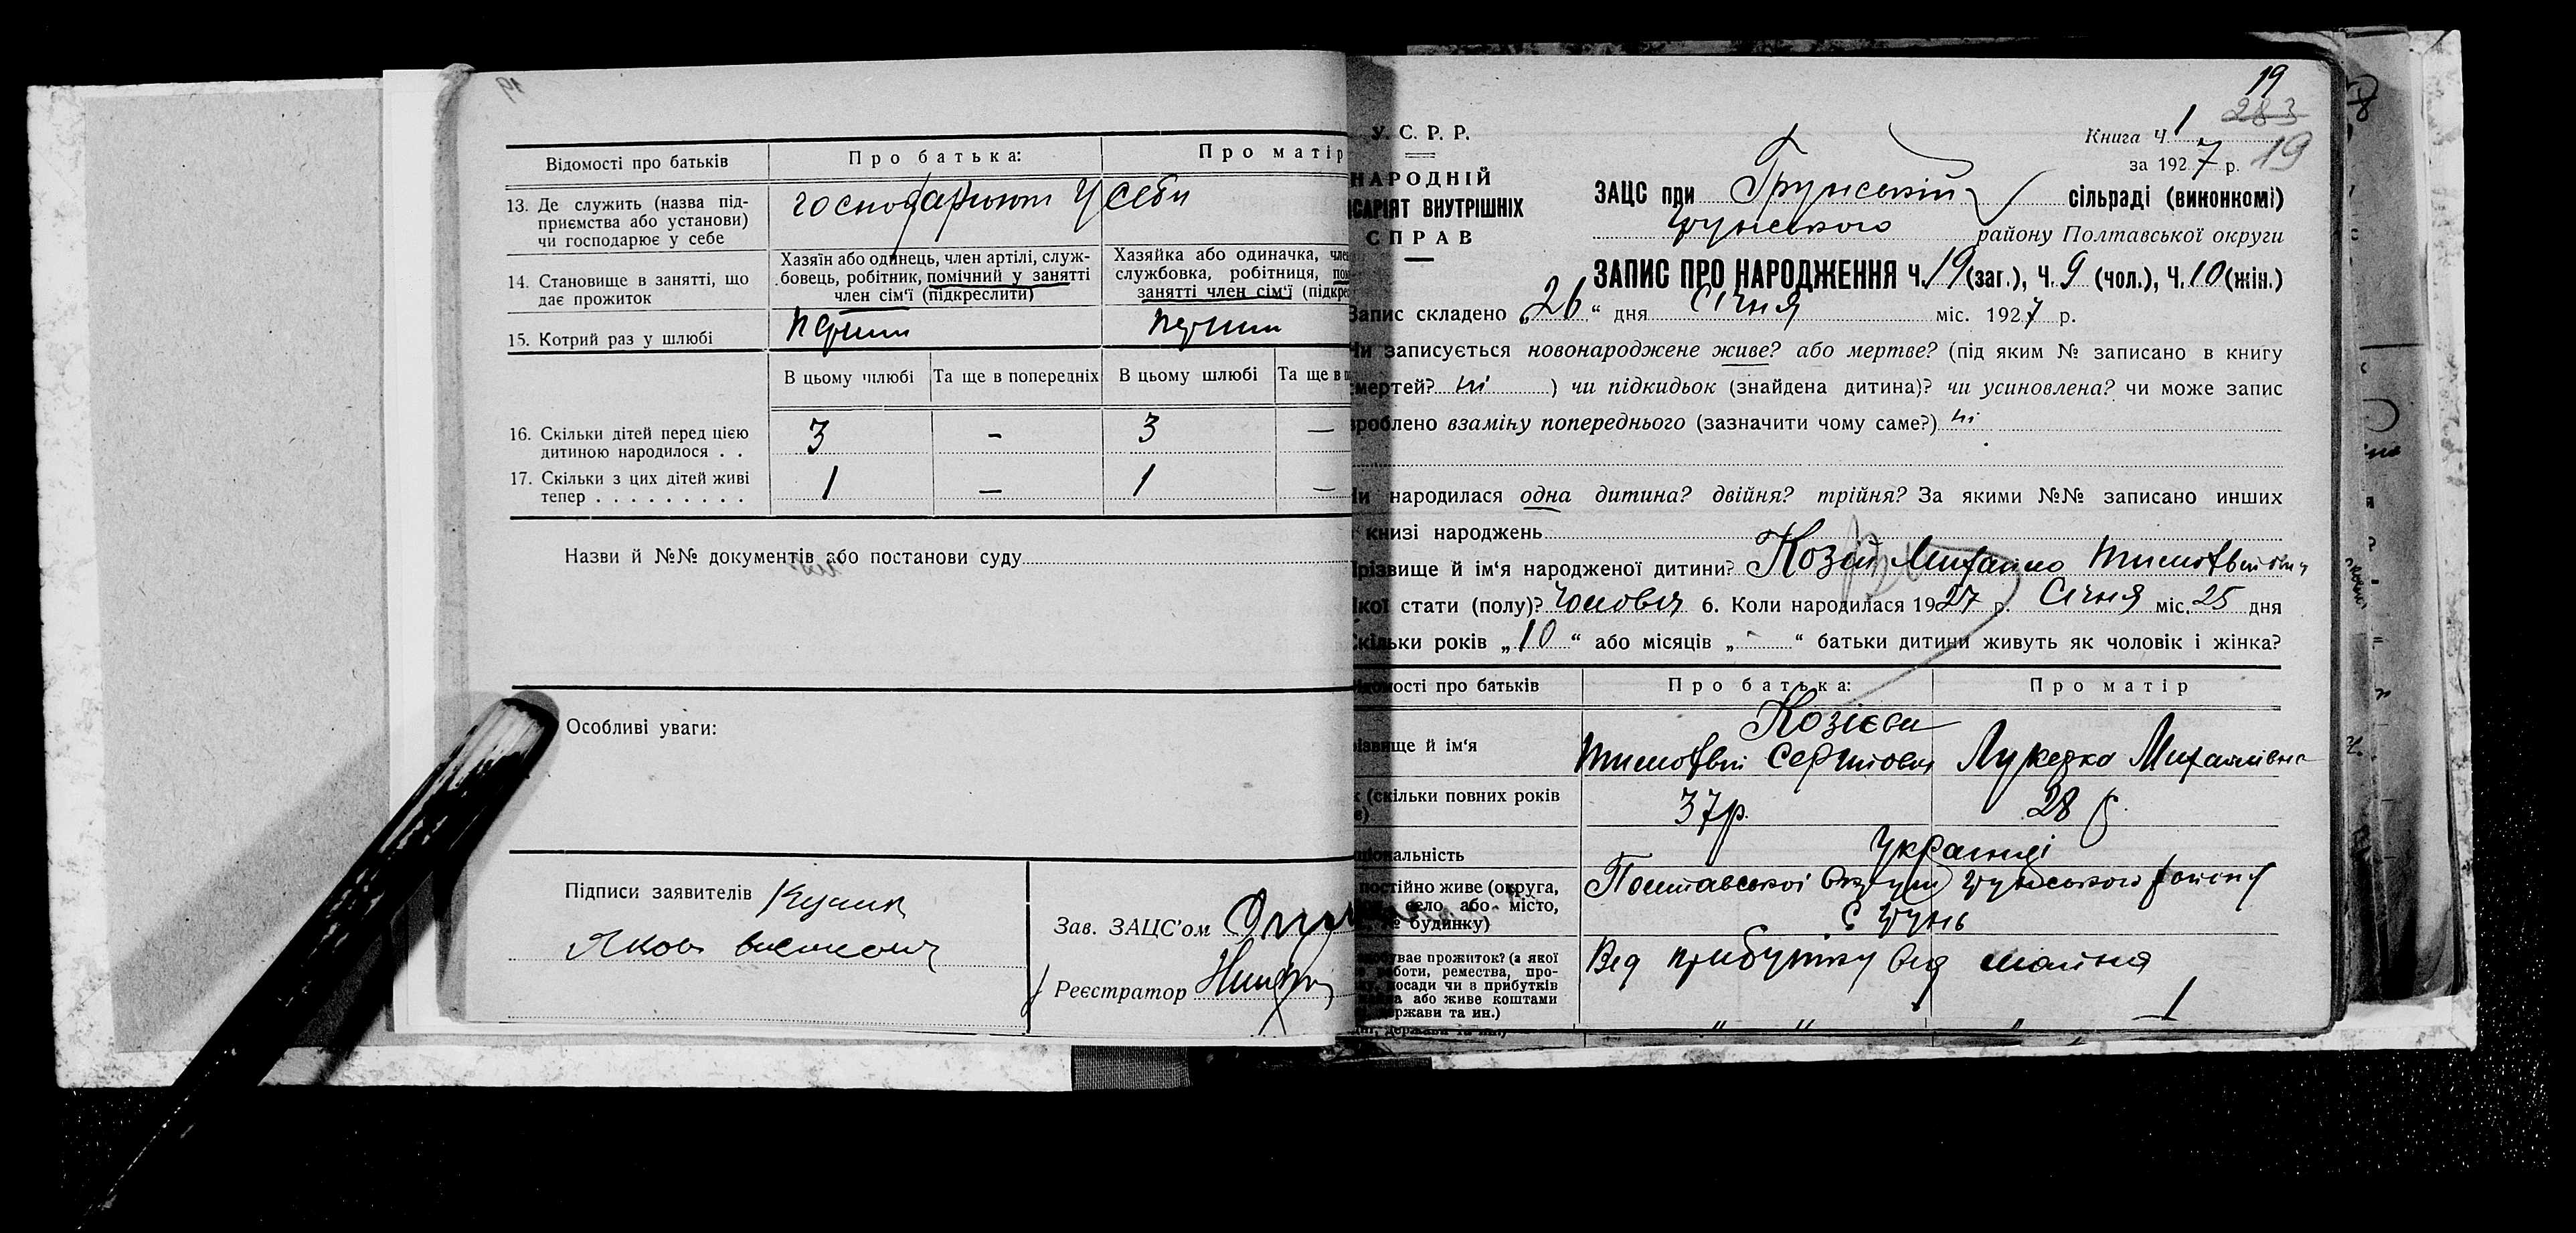 Відомості про батьків
Про батька:
Про матір
13. Де служить (назва під-
приємства або установи)
чи господарює у себе
господарюют у себи
14. Становище в занятті, що
дає прожиток
Хазяїн або одинець, член артілі, служ-
бовець, робітник, помічний у занятті
член сім'ї (підкреслити)
Хазяйка або одиначка, чле
службовка, робітниця, по
занятті член сім'ї (підкре
15. Котрий раз у шлюбі
перший
перший
В цьому шлюбі
Та ще в попередніх
В цьому шлюбі
Та ще в п
16. Скільки дітей перед цією
дитиною народилося . .
3 - 3 —
17. Скільки з цих дітей живі
тепер . . . . . . . . .
1 — 1 —
Назви й №№ документів або постанови суду
Особливі уваги:
Підписи заявителів
Яков
Зав. ЗАЦС'ом
Реєстратор
19
283
19
У. С. Р. Р.
НАРОДНІЙ
САРІЯТ ВНУТРІШНІХ
СПРАВ
Книга Ч. 1
за 1927 р.
ЗАЦС при Грунський сільраді (виконкомі)
Грунського району Полтавської округи
ЗАПИС ПРО НАРОДЖЕННЯ Ч. 19 (заг.), Ч. 9 (чол.), Ч. 10 (жін.)
Запис складено „26“ дня Січня міс. 1927 р.
Чи записується новонароджене живе? або мертве? (під яким № записано в книгу
смертей? ні ) чи підкидьок (знайдена дитина)? чи усиновлена? чи може запис
зроблено взаміну попереднього (зазначити чому саме?) ні
Чи народилася одна дитина? двійня? трійня? За якими №№ записано инших
книзі народжень
Прізвище й ім'я народженої дитини? Козій Михайло Тимофвийович
Якої стати (полу)? Чоловіч 6. Коли народилася 1927 р. Січня міс. 25 дня
Скільки років „10“ або місяців „-“ батьки дитини живуть як чоловік і жінка?
омості про батьків
Про батька:
Про матір
Козієви
ізвище й ім'я
Тимофвий Сергийович
Лукерка Михайлівна
к (скільки повних років
37р.
28 р.
ціональність
Українці
постійно живе (округа,
село або місто,
№ будинку)
Полтавської Округи Грунського району
С Грунь
буває прожиток? (з якої
роботи, ремества, про-
посади чи з прибутків
майна або живе коштами
держави та ин.)
Вед прибутку від майна
1
держави та ин.)